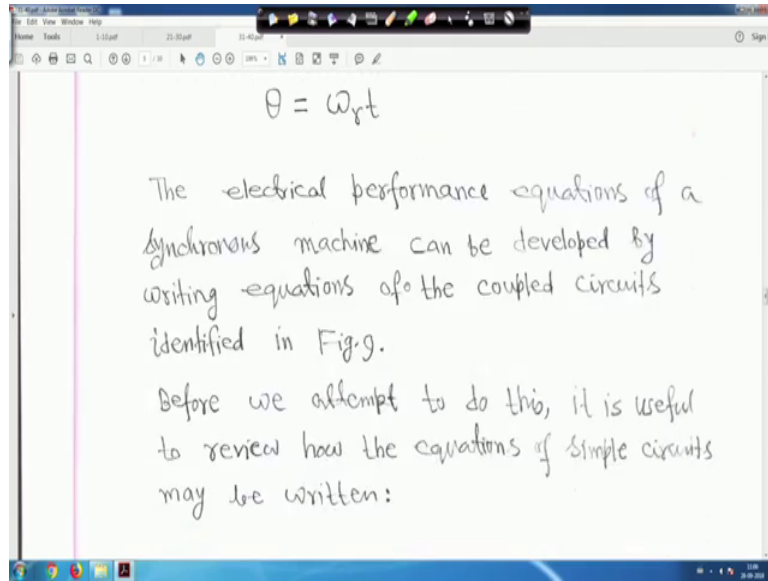 File Edit View Window Help
Home Tools 1-10.pdf 21-30.pdf 31-40.pdf Sign
θ = ωrt
The electrical performance equations of a
synchronous machine can be developed by
writing equations of the coupled circuits
identified in Fig.9.
Before we attempt to do this, it is useful
to review how the equations of simple circuits
may be written: